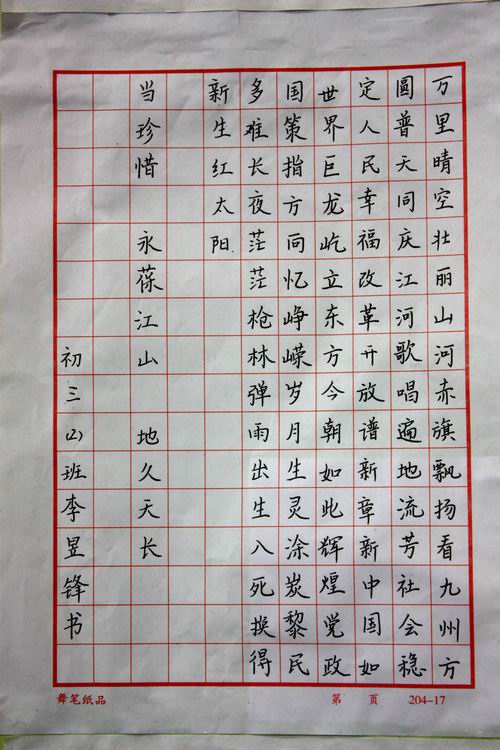 万里晴空壮丽山河赤旗飘扬看九州方
圆普天同庆江河歌唱遍地流芳社会稳
定人民幸福改革开放谱新章新中国如
世界巨龙屹立东方今朝如此辉煌党政
国策指方向忆峥嵘岁月生灵涂炭黎民
多难长夜茫茫枪林弹雨出生入死换得
新生红太阳.
当珍惜 永葆江山 地久天长
初三(2)班李昱锋书
笔纸品
第 页 204-17